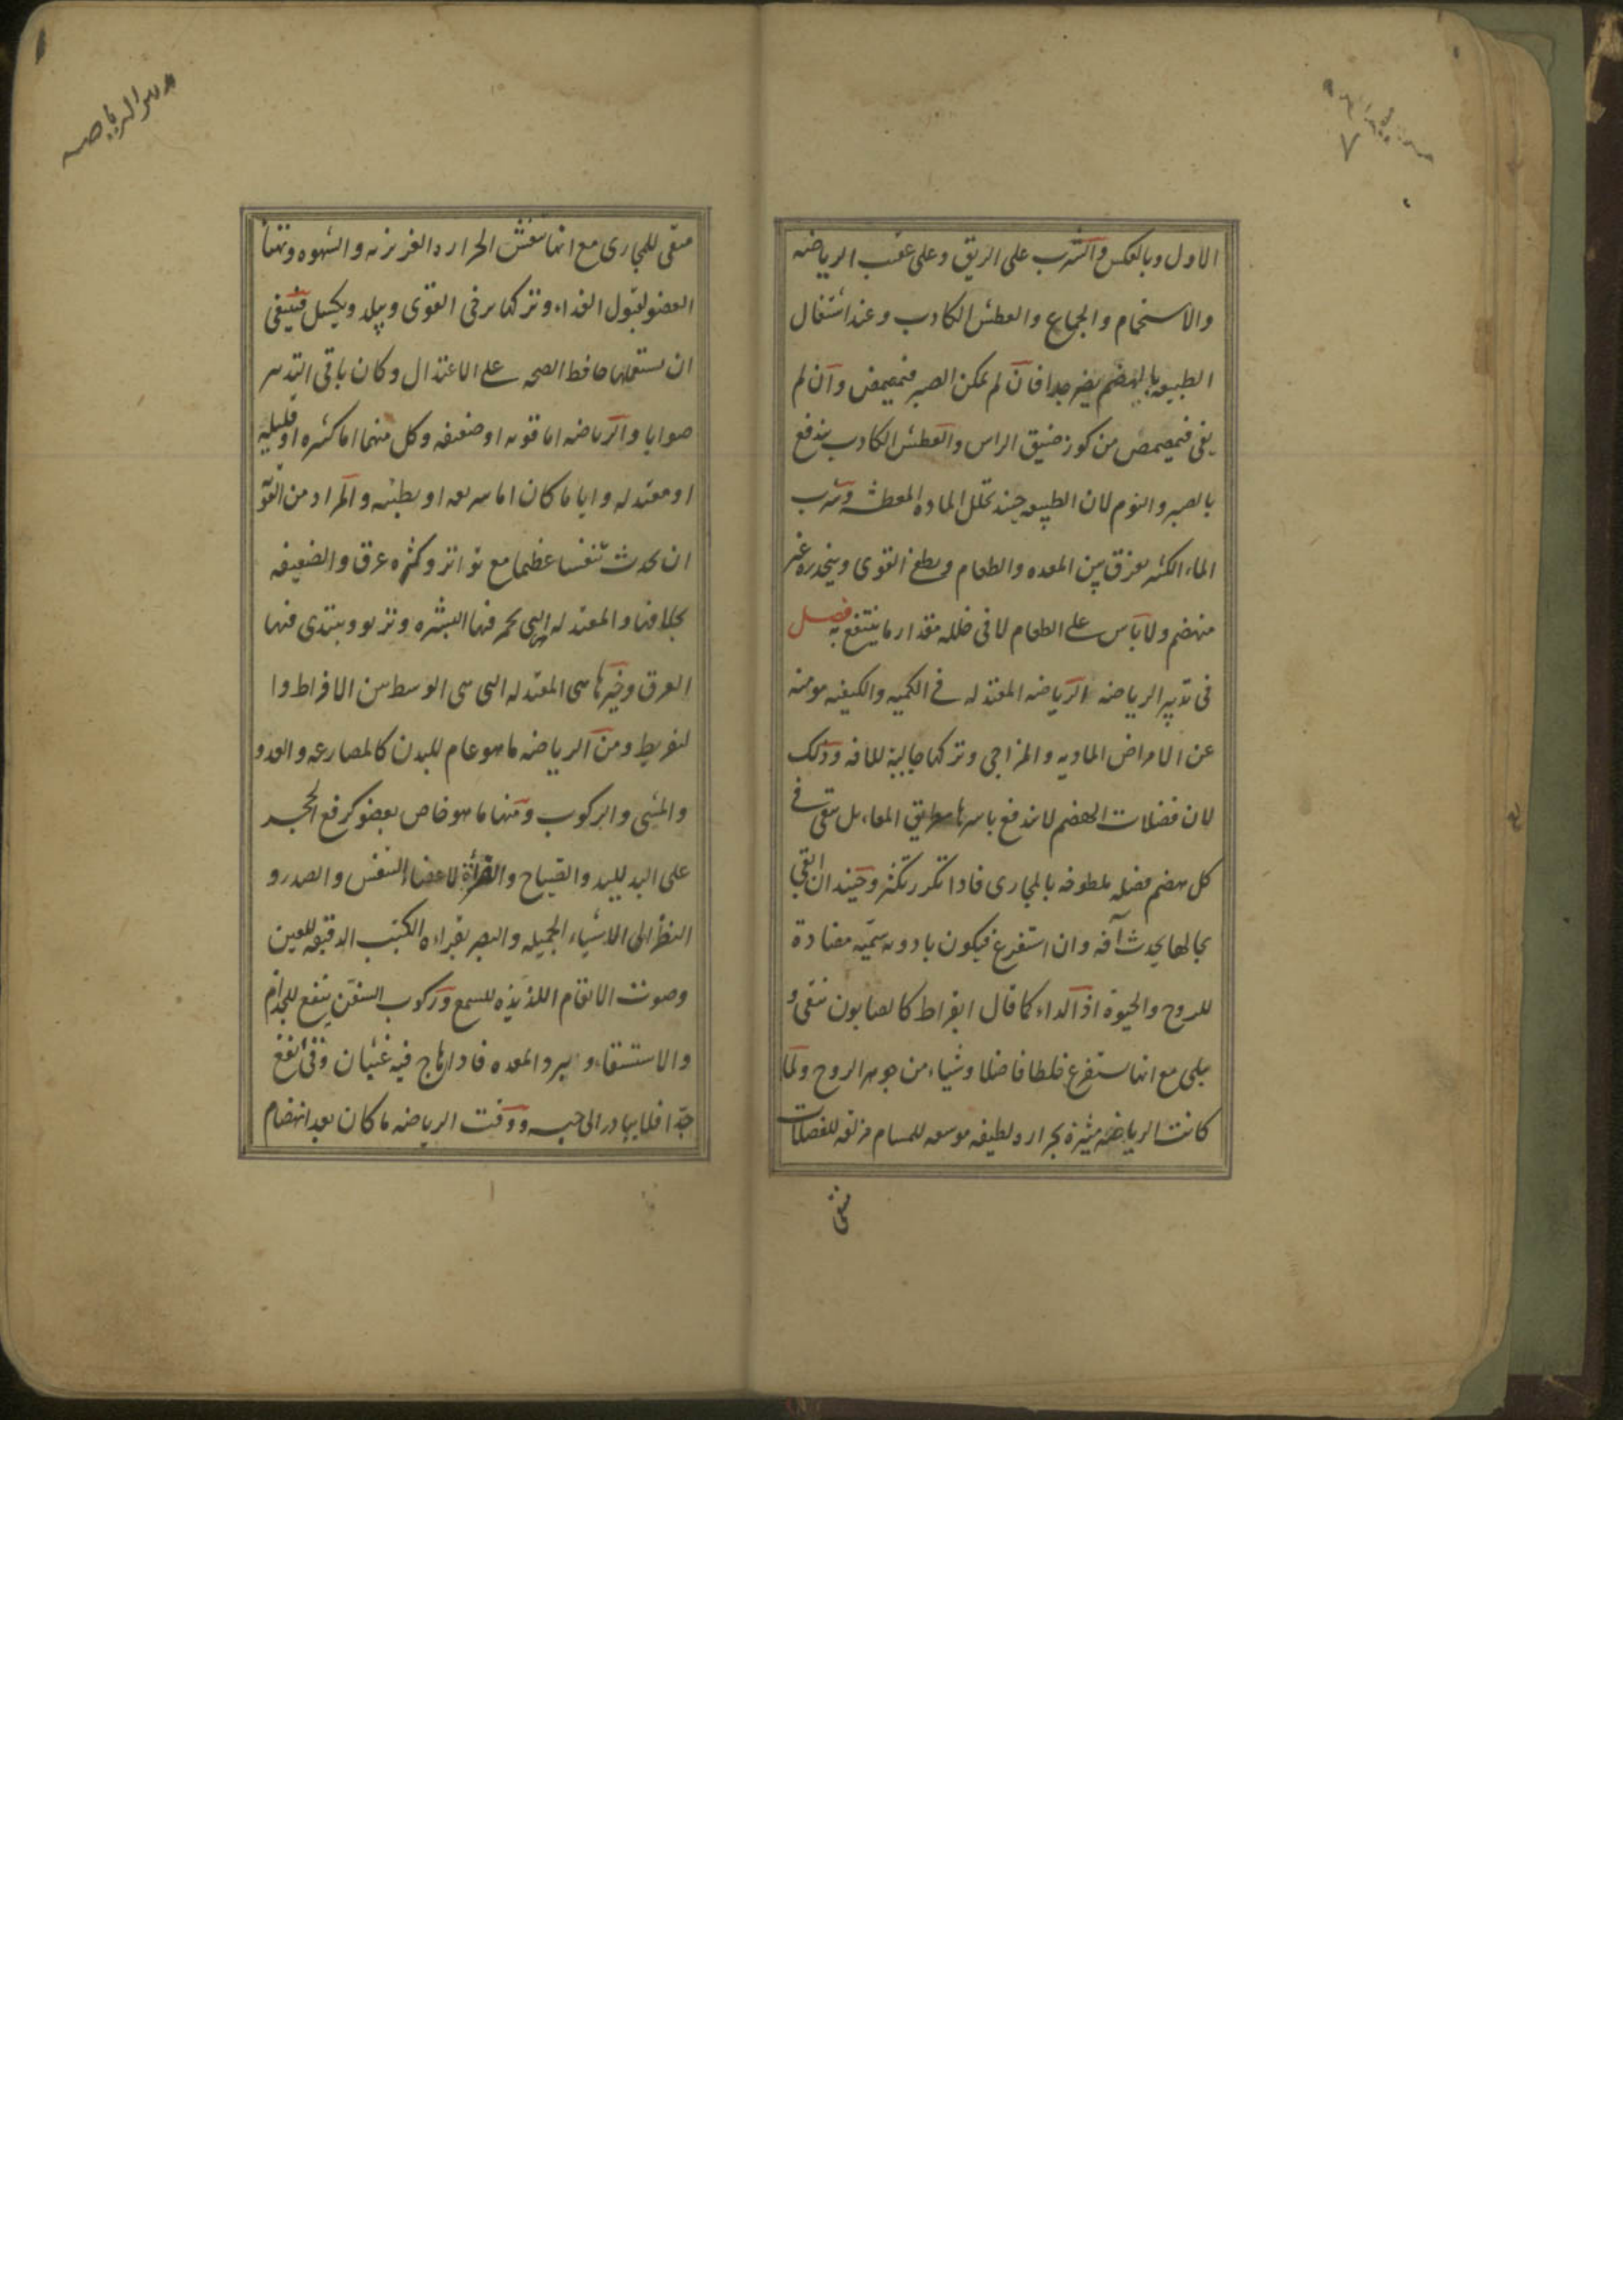 الاول وبالعكس والشرب على الريق وعلى عقب الرياضه
والاستحمام والجماع والعطش الكادب وعند اشتغال
الطبيعه بالهضم يضر جدا فان لم يمكن الصبر فيمصمض وان لم
يفى فيمصمص من كوز ضيق الراس والعطش الكادب يندفع
بالصبر والنوم لان الطبيعه حينئد تحلل الماده المعطشه وشرب
الماء الكثير يفرق بين المعده والطعام ويطفى القوى وينحدر غير
منهضم ولا باس على الطعام لا فى خلله مقدار ما ينتفع به فصل
فى تدبير الرياضه الرياضه المعتدله فى الكميه والكيفيه مومنه
عن الامراض الماديه والمزاجى وتركها جالبة للافه وذلك
لان فضلات الهضم لا تندفع باسرها بطريق المعاء بل تبقى فى
كل هضم فضله ملطوخه بالمجارى فادا تكرر تكثر وحينئد ان ابقى
بحالها يحدث آفه وان استفرغ فيكون بادويه سميّه مضادة
للروح والحيوة اذ الداء كما قال ابقراط كالصابون ينقى و
يبلى مع انها يستفرغ خلطا فاضلا وشياء من جوهر الروح ولما
كانت الرياضة مثيرة بحرارة لطيفه موسعه للمسام مزلقه للفضلات
نقى
مدبر الرياضه
منقى للمجارى مع انها تنعش الحراره الغريزيه والشهوه وتهيأ
العضو لقبول الغداء وتركها يرخى القوى ويبلد ويكسل فينبغى
ان يستعملها حافظ الصحه على الاعتدال وكان باقى التدبير
صوابا والرياضه اما قويه او ضعيفه وكل منهما اما كثيره او قليله
او معتدله وايا ما كان اما سريعه او بطيئه والمراد من القوّ
ان يحدث تنفسا عظيما مع تواتر وكثره عرق والضعيفه
بخلافها والمعتدله التى يحمر فيها البشره وتربو ويبتدى فيها
العرق وخيرها هى المعتدله التى هى الوسط بين الافراط وا
لتفريط ومن الرياضه ما هو عام للبدن كالمصارعه والعدو
والمشى والركوب ومنها ما هو خاص بعضو كرفع الحجر
على اليد لليد والصياح والقرأة لاعضاء التنفس والصدر و
النظر الى الاشياء الجميله والبصر بقراءه الكتب الدقيقه للعين
وصوت الانغام اللذيذه للسمع وركوب السفن ينفع للجدام
والاستسقاء وبرد المعده فادا هاج فيه غثيان وقئ انفع
جدّا فلا يبادر الى حبسه ووقت الرياضه ما كان بعد انهضام